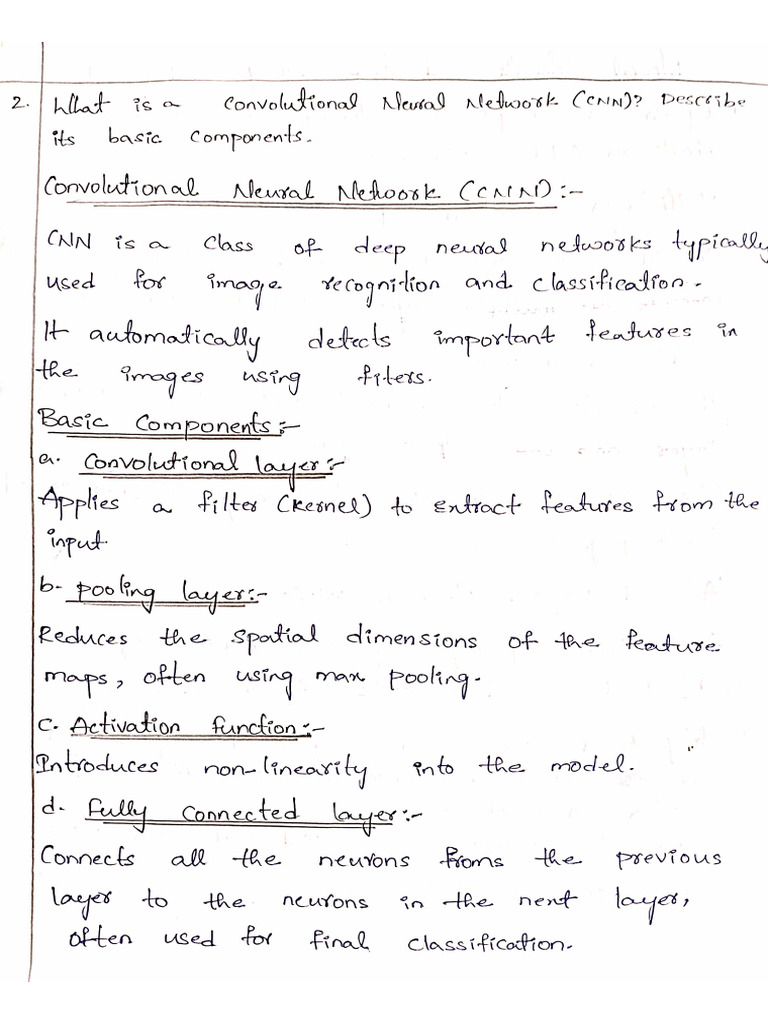 2. What is a Convolutional Neural Network (CNN)? Describe
its basic components.
Convolutional Neural Network (CNN):-
CNN is a class of deep neural networks typically
used for image recognition and classification.
It automatically detects important features in
the images using filters.
Basic Components:-
a. Convolutional layer:-
Applies a filter (kernel) to extract features from the
input.
b- pooling layer:-
Reduces the spatial dimensions of the feature
maps, often using max pooling.
c. Activation function:-
Introduces non-linearity into the model.
d. Fully connected layer:-
Connects all the neurons froms the previous
layer to the neurons in the next layer,
often used for final classification.